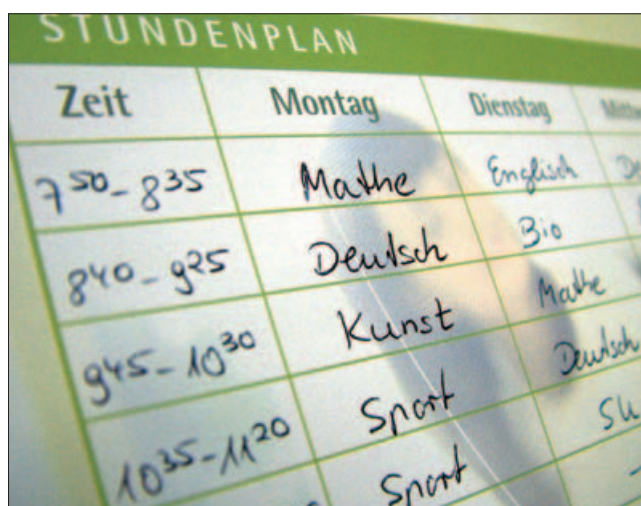 STUNDENPLAN
Zeit Montag Dienstag
7 50 - 8 35 Mathe Englisch
8 40 - 9 25 Deutsch Bio
9 45 - 10 30 Kunst Mathe
10 35 - 11 20 Sport Deutsch
Sport